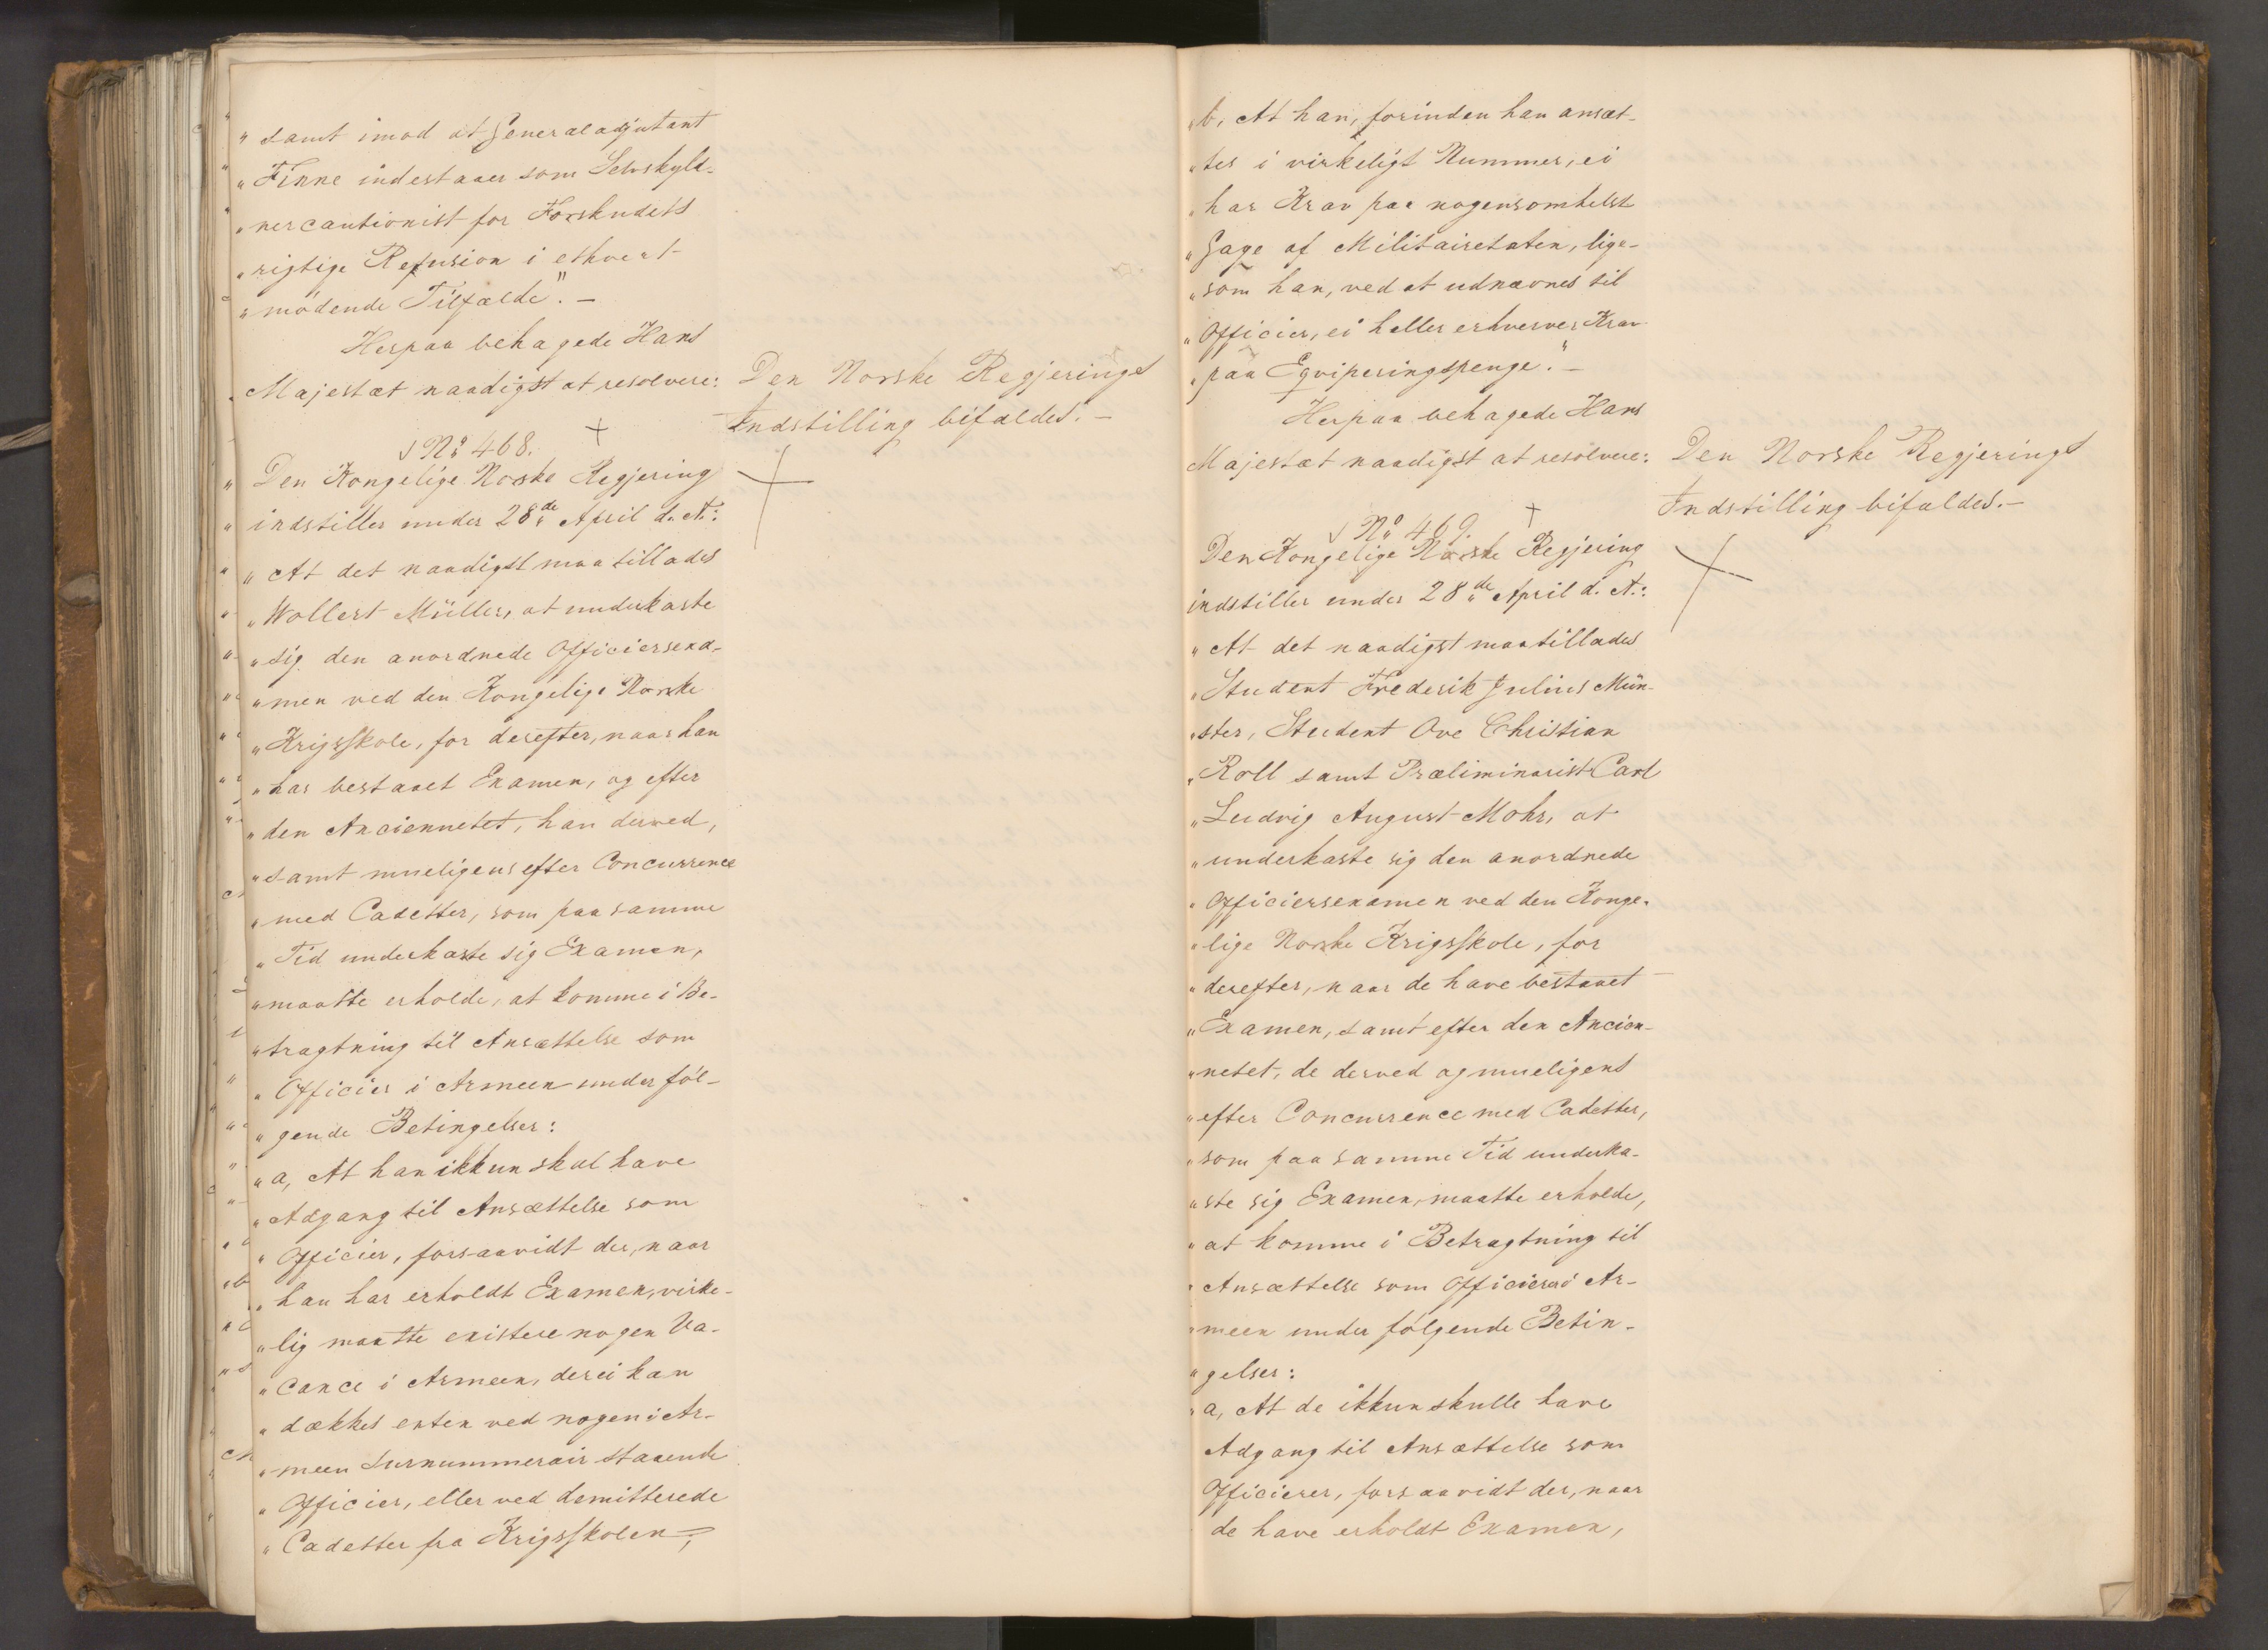 "samt imod at Generaladjutant
"Finne indestaaer som Selvskyld-
"nercautionist for Forskudets
"rigtige Refusion i ethvert-
"mödende Tilfælde". -
Herpaa behagede Hans
Majestæt naadigst at resolvere:
Den Norske Regjerings
Indstilling bifaldes. -
No 468.
Den Kongelige Norske Regjering
indstiller under 28de April d. A.:
"At det naadigst maa tillades
"Wollert Müller, at underkaste
"sig den anordnede Officiersexa-
"men ved den Kongelige Norske
"Krigsskole, for derefter, naar han
"har bestaaet Examen, og efter
"den Anciennetet, han derved,
"samt mueligens efter Concurrence
"med Cadetter, som paa samme
"Tid underkaste sig Examen,
"maatte erholde, at komme i Be-
"tragtning til Ansættelse som
"Officier i Armeen under föl-
"gende Betingelser:
"a, At han ikkun skal have
"Adgang til Ansættelse som
"Officier, forsaavidt der, naar
"han har erholdt Examen, virke-
"lig maatte existere nogen Va-
"cance i Armeen, der ei kan
"dækkes enten ved nogen i Ar-
"meen surnummerair staaende
"Officier, eller ved demitterede
"Cadetter fra Krigsskolen,
"b, At han, forinden han ansæt-
"tes i virkeligt Nummer, ei
"har Krav paa nogensomhelst
"Gage af Militairetaten, lige-
"som han, ved at udnævnes til
"Officier, ei heller erhverver Krav
"paa Eqviperingspenge." -
Herpaa behagede Hans
Majestæt naadigst at resolvere:
Den Norske Regjerings
Indstilling bifaldes. -
No 469.
Den Kongelige Norske Regjering
indstiller under 28de April d. A.:
"At det naadigst maa tillades
"Student Frederik Julius Mün-
"ster, Student Ove Christian
"Roll samt Præliminarist Carl
"Ludvig August Mohr, at
"underkaste sig den anordnede
"Officiersexamen ved den Konge-
"lige Norske Krigsskole, for
"derefter, naar de have bestaaet
"Examen, samt efter den Ancien-
"netet, de derved og mueligens
"efter Concurrence med Cadetter,
"som paa samme Tid underka-
"ste sig Examen, maatte erholde,
"at komme i Betragtning til
"Ansættelse som Officierer i Ar-
"meen under følgende Betin-
"gelser:
"a, At de ikkun skulle have
Adgang til Ansættelse som
Officierer, forsaavidt der, naar
de have erholdt Examen,